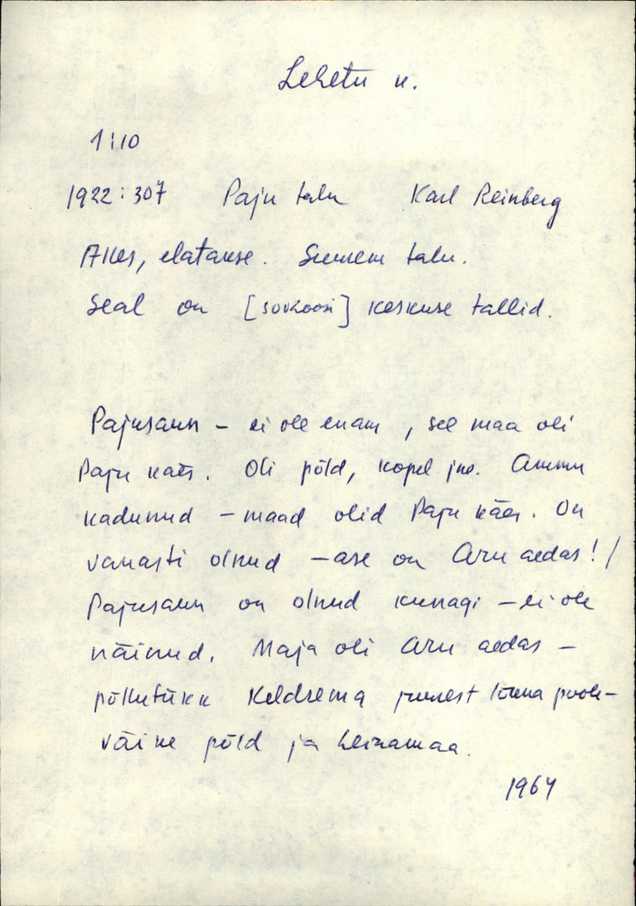 Lehetu k.
1:10
1922:307 Paju talu Karl Reinberg
Alles, elatakse. Suurem talu.
Seal on [sovhoosi] keskuse tallid.
Pajusaun – ei ole enam, see maa oli
Paju käes. Oli põld, kopel jne. Ammu
kadunud – maad olid Paju käes. On
vanasti olnud – ase on Aru aedas!/
Pajusaun on olnud kunagi – ei ole
näinud. Maja oli Aru aedas –
põllutükk Keldrema juurest lõuna poole –
väike põld ja heinamaa.
1964